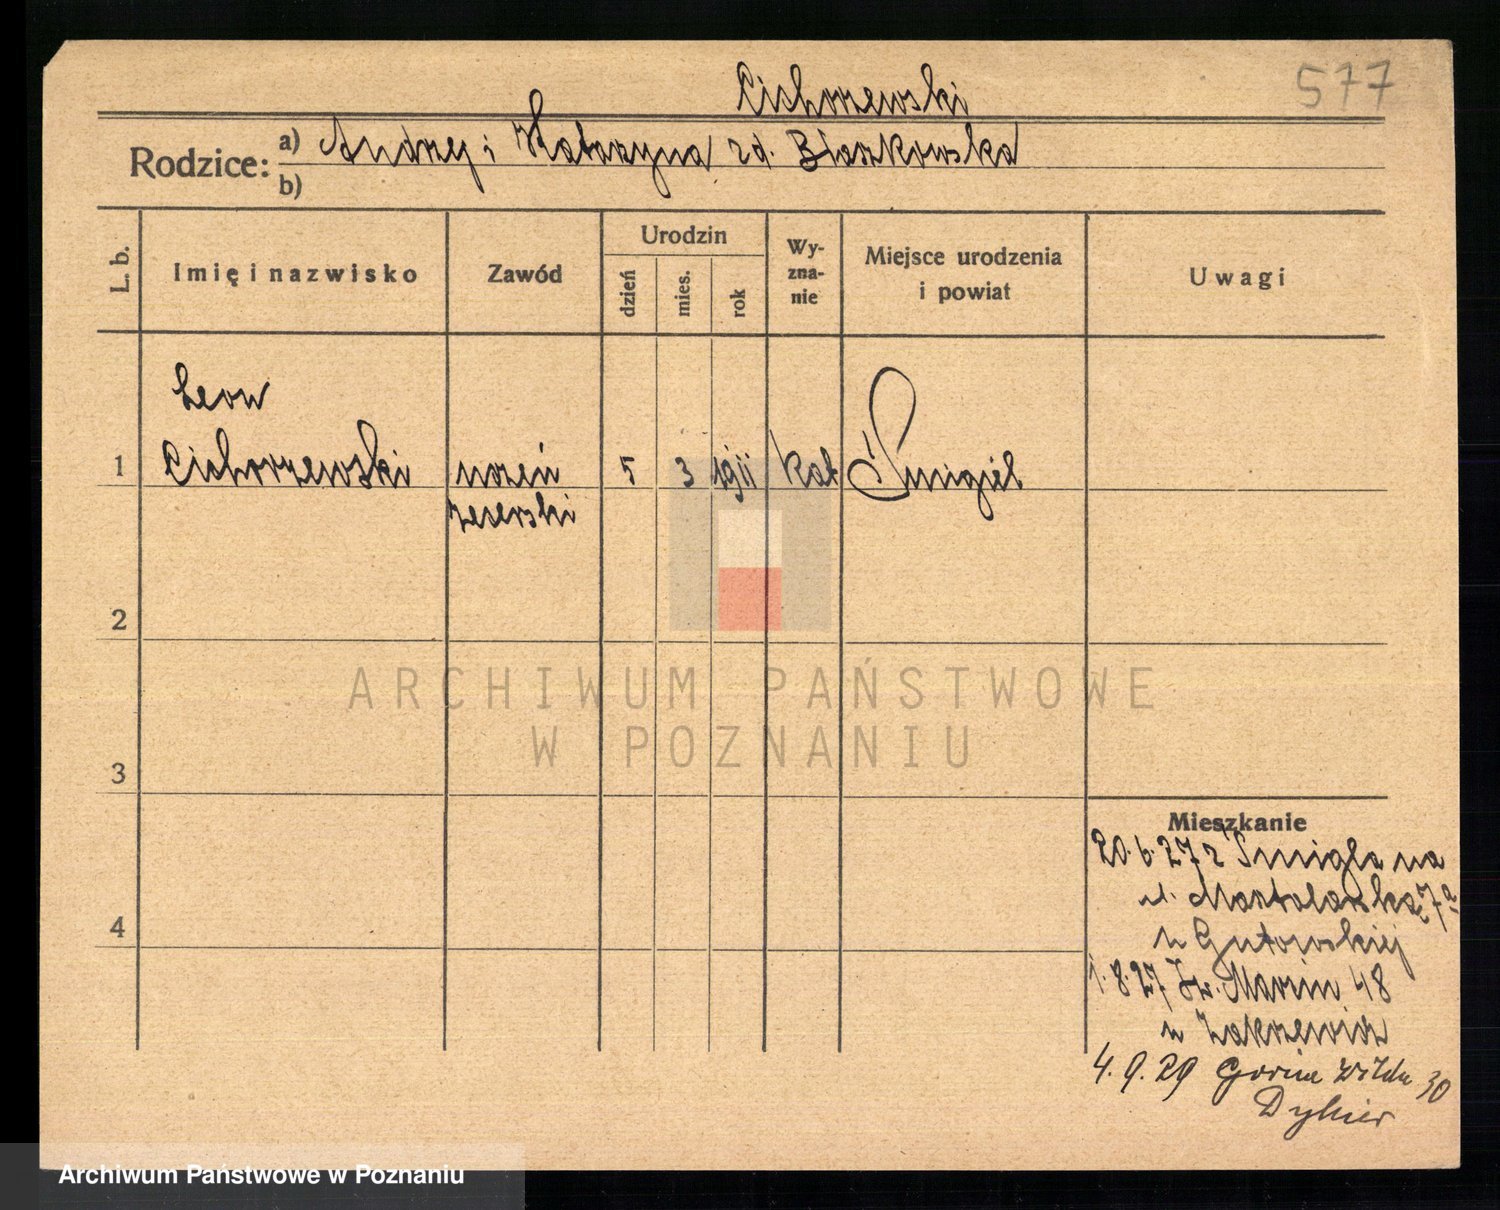 577
Cichorzewski
Rodzice: a) Andrzej i Katarzyna zd. Błaszkowska
b)
L. b.
Imię i nazwisko
Zawód
Urodzin
dzień
mies.
rok
Wy-
zna-
nie
Miejsce urodzenia
i powiat
Uwagi
Leon
1 Cichorzewski uczeń 5 3 1911 kat Śmigiel
2
3
4
ARCHIWUM PAŃSTWOWE
W POZNANIU
Mieszkanie
20.6.27 z Śmigla na
ul. Masztalarską 7a
u Gutowskiej
1.8.27 Św. Marcin 48
u Zakrzewicz
4.9.29 Górna Wilda 30
Archiwum Państwowe w Poznaniu